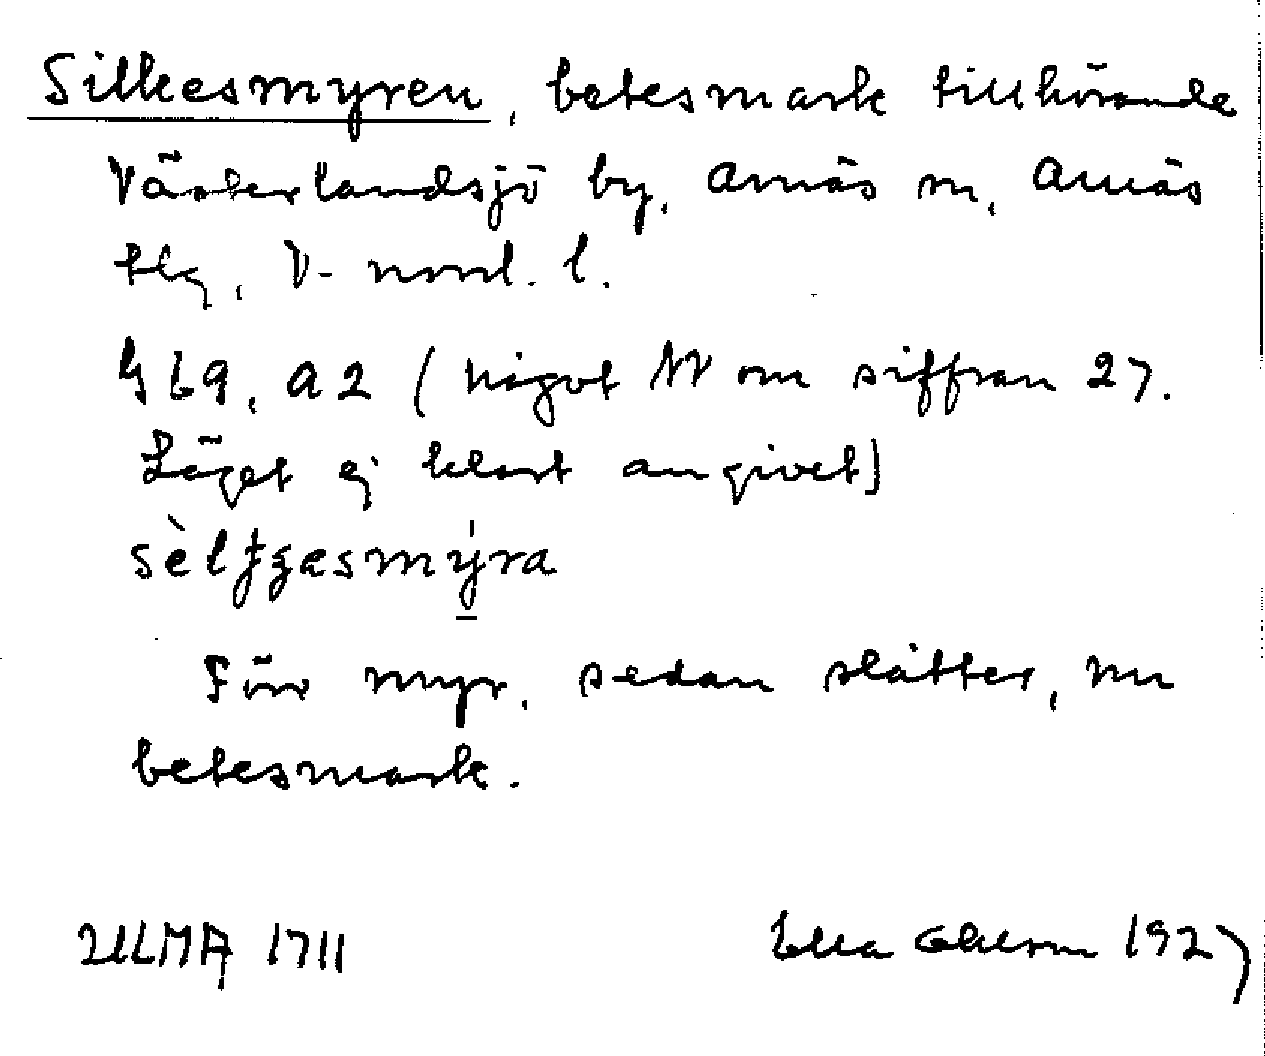 Silkesmyren, betesmark tillhörande
Västerlandsjö by, Arnäs sn, Arnäs
tlg, V-norrl. l.
G 69, a2 (något NV om siffran 27.
Läget ej klart angivet)
sèlʄʒesmýra
Förr myr, sedan slåtter, nu
betesmark.
ULMA 1711 Ella Ohlson 1927